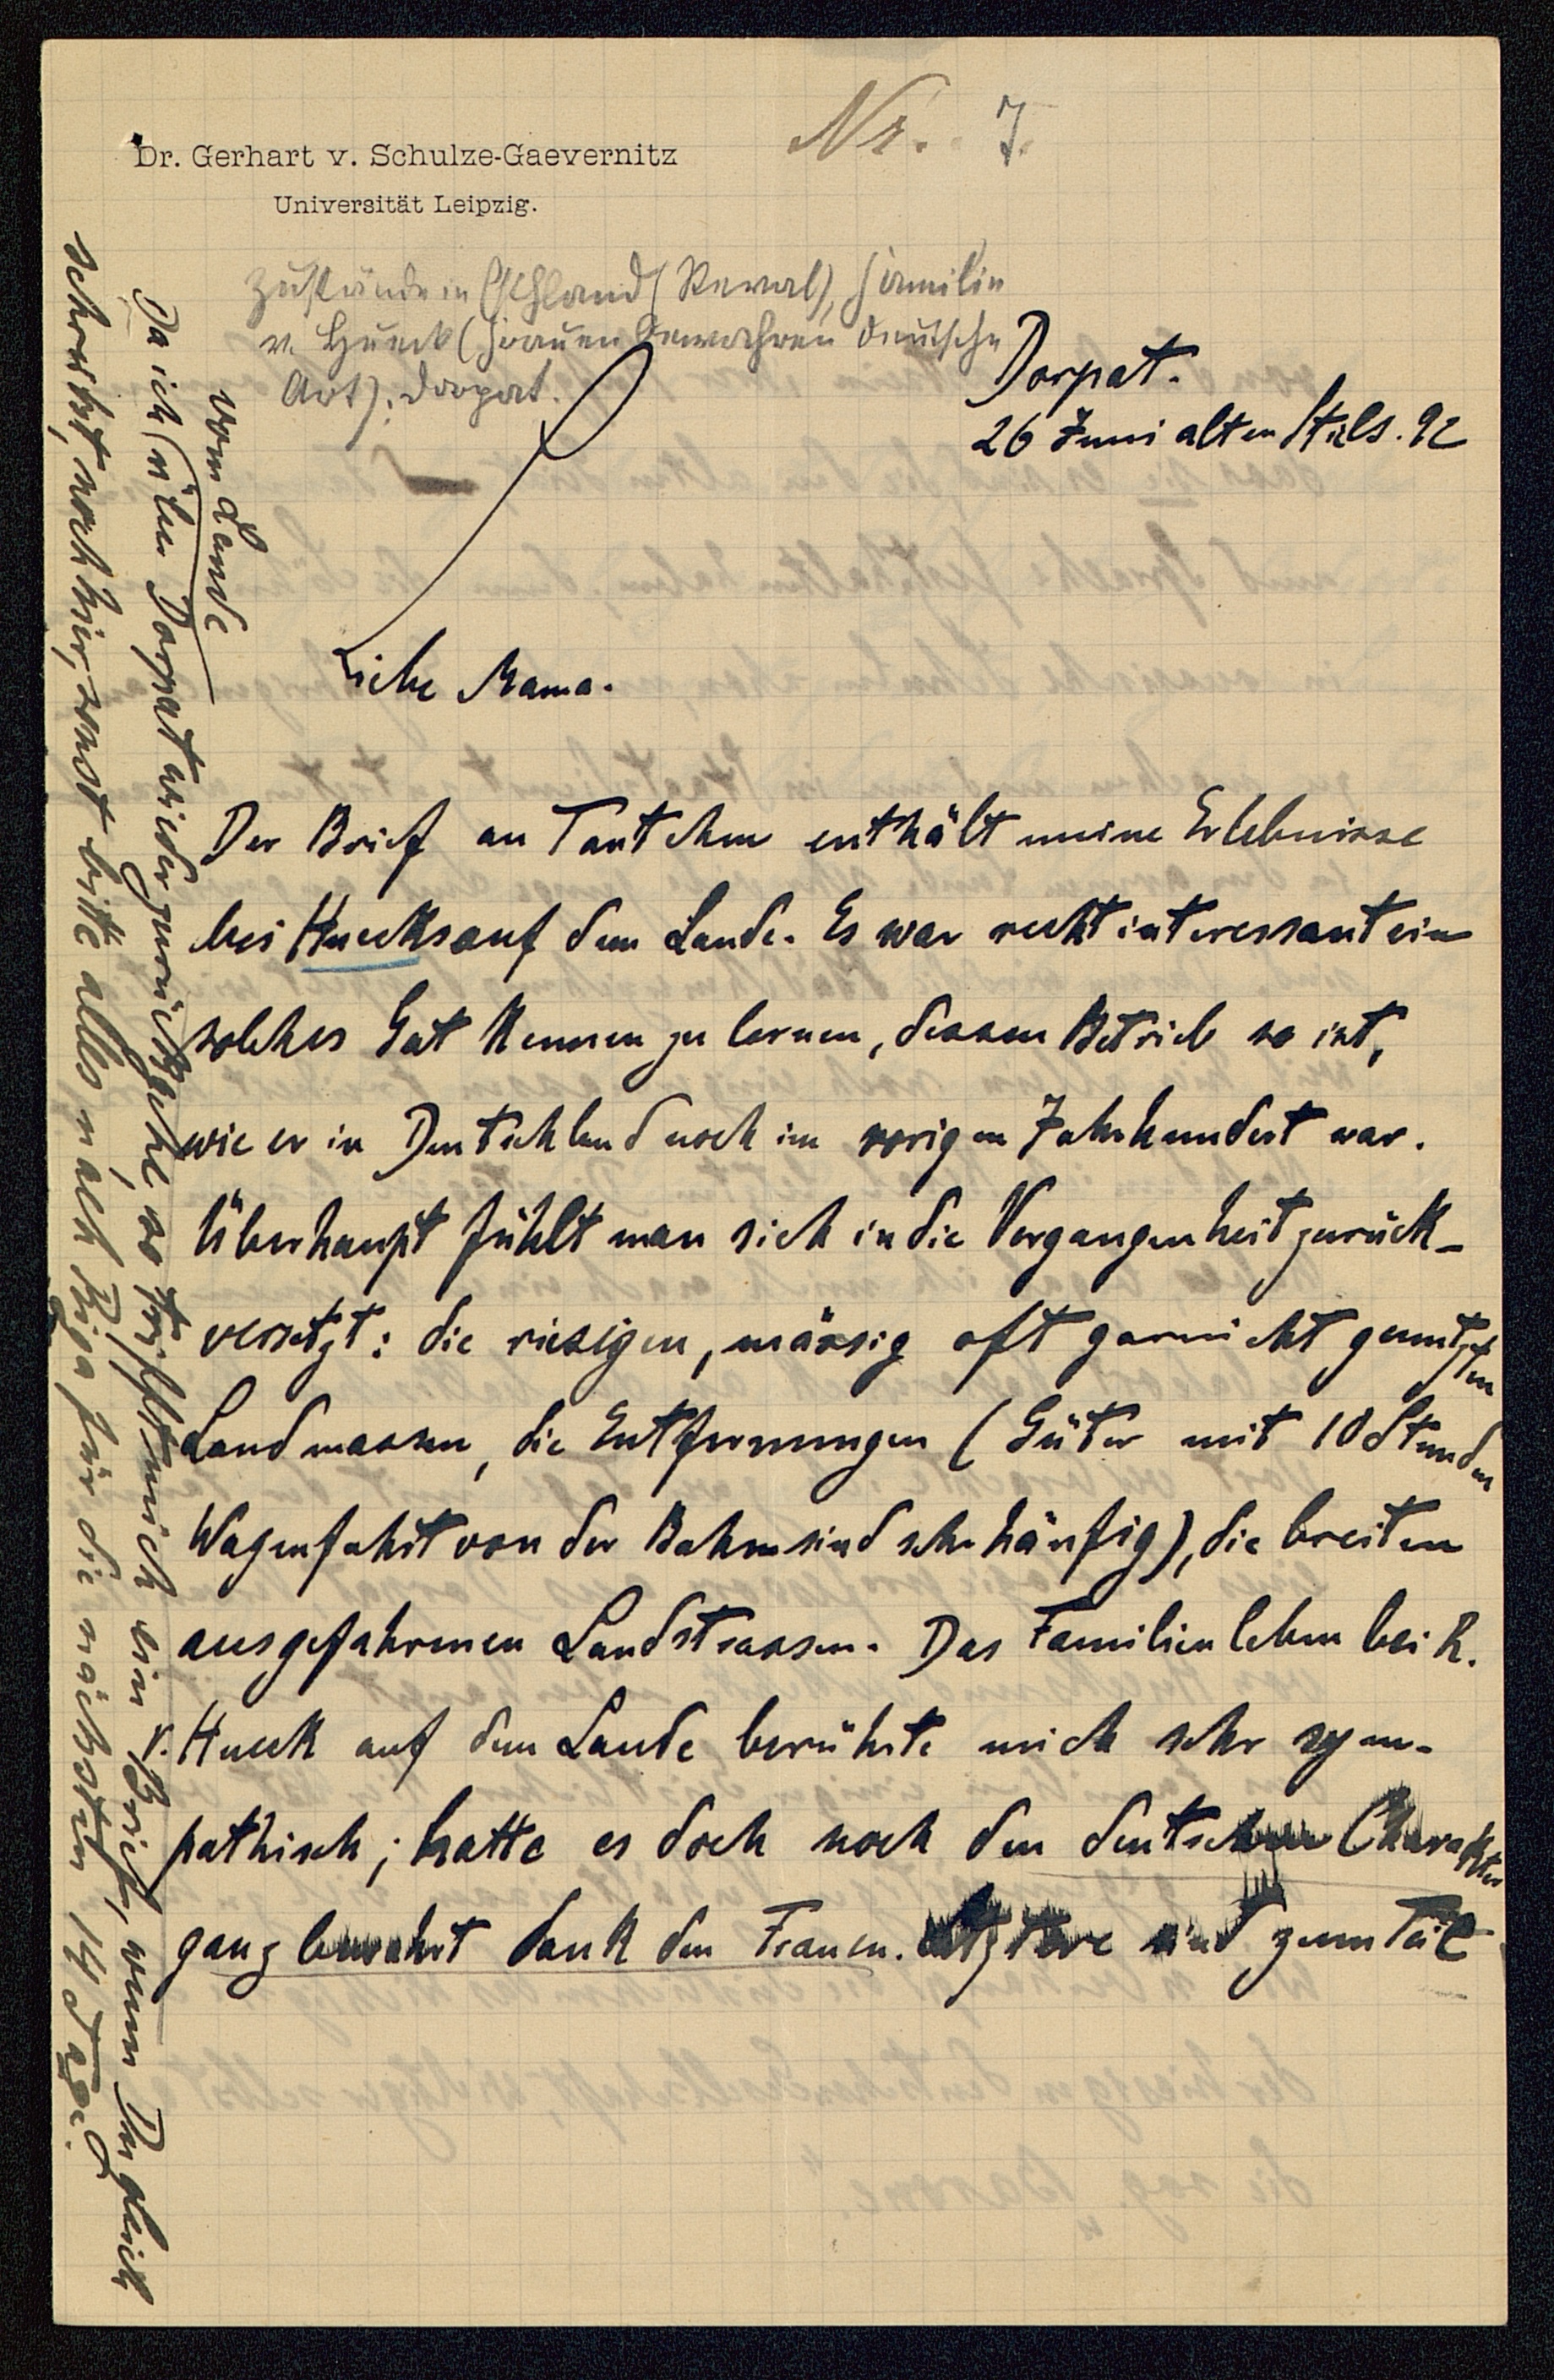 Nr. 7.
Dr. Gerhart v. Schulze-Gaevernitz
Universität Leipzig.
Zustände in Esthland (Reval), Familie
v. Hueck (Frauen bewahren deutsche
Art); Dorpat.
Dorpat.
26 Juni alten Stils. 92
Liebe Mama.
Der Brief an Tantchen enthält meine Erlebnisse
bei Huecks auf dem Lande. Es war recht interessant ein
solches Gut kennen zu lernen, dessen Betrieb so ist,
wie er in Deutschland noch im vorigen Jahrhundert war.
Überhaupt fühlt man sich in die Vergangenheit zurück-
versetzt: die riesigen, mässig oft garnicht genutzten
Landmassen, die Entfernungen (Güter mit 10 Stunden
Wagenfahrt von der Bahn sind sehr häufig), die breiten
ausgefahrenen Landstrassen. Das Familienleben bei H.
v. Hueck auf dem Lande berührte mich sehr sym-
pathisch; hatte es doch noch den deutschen Charakter
ganz bewahrt dank den Frauen. Letztere sind zum Teil
vom Lande
Da ich über Dorpat wieder zurückgehe, so trifft mich ein Brief, wenn Du gleich
schreibst, noch hier, sonst bitte alles nach Riga für die nächsten 14 Tage.